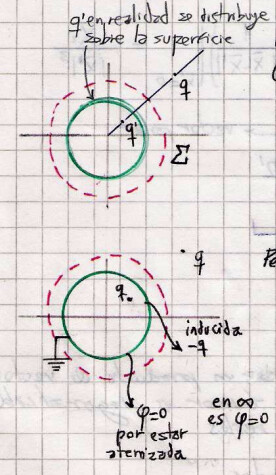 q' en realidad se distribuye
sobre la superficie
q
q'
Σ
q
q
inducida
-q
φ=0
por estar
aterrizada
en ∞
es φ=0